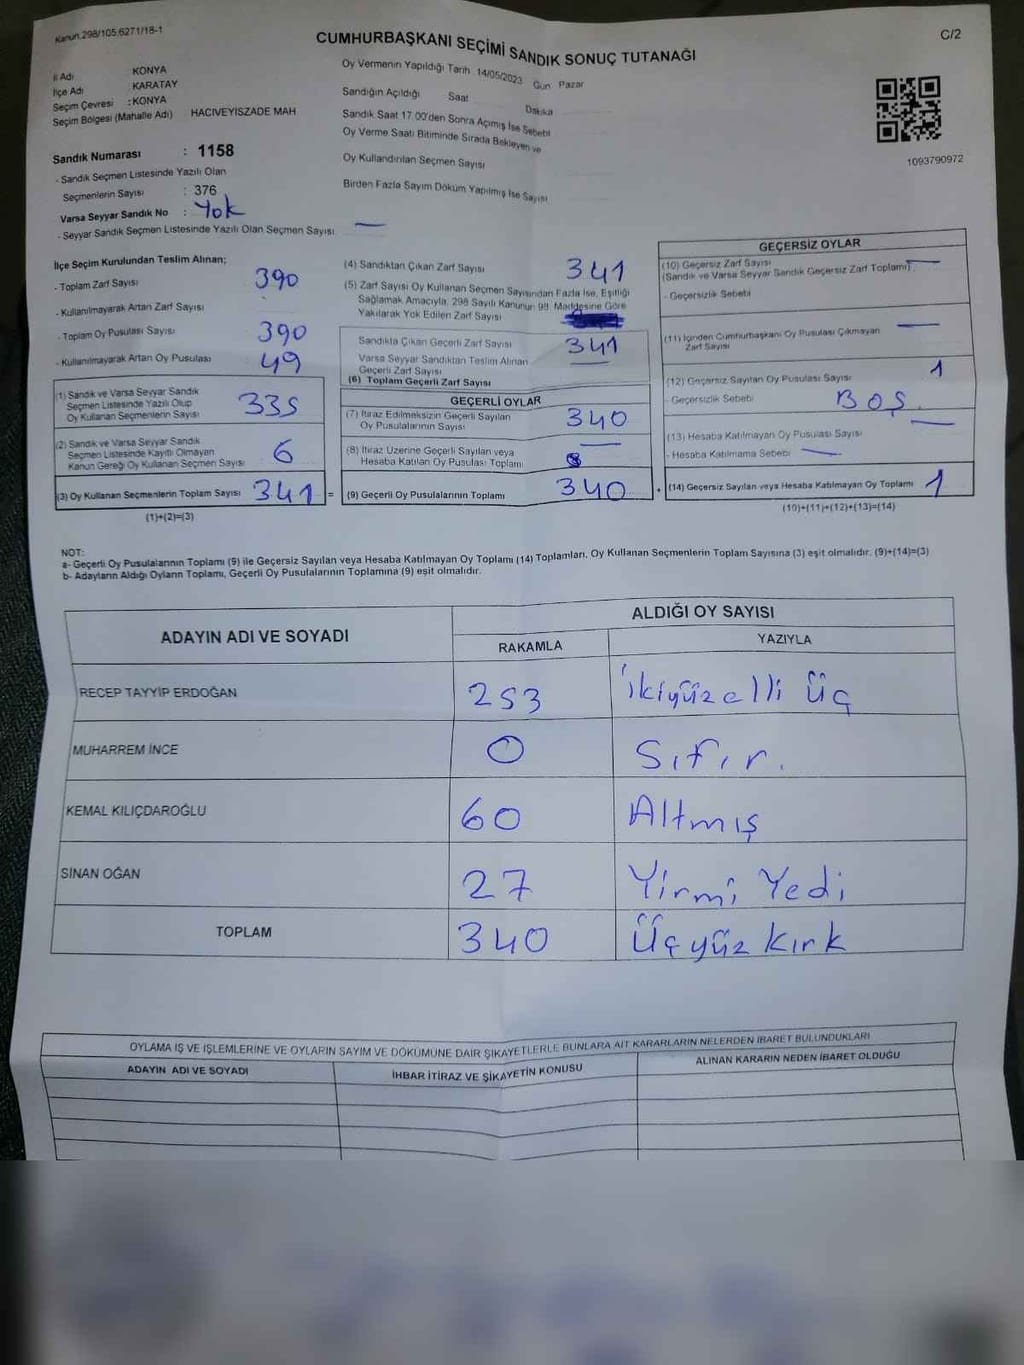 Kanun.298/105.6271/18-1
C/2
CUMHURBAŞKANI SEÇİMİ SANDIK SONUÇ TUTANAĞI
İl Adı : KONYA
İlçe Adı : KARATAY
Seçim Çevresi : KONYA
Seçim Bölgesi (Mahalle Adı) HACIVEYISZADE MAH
Sandık Numarası : 1158
- Sandık Seçmen Listesinde Yazılı Olan
Seçmenlerin Sayısı : 376
Varsa Seyyar Sandık No : Yok
- Seyyar Sandık Seçmen Listesinde Yazılı Olan Seçmen Sayısı —
Oy Vermenin Yapıldığı Tarih 14/05/2023 Gün Pazar
Sandığın Açıldığı Saat Dakika
Sandık Saat 17.00'den Sonra Açılmış İse Sebebi
Oy Verme Saati Bitiminde Sırada Bekleyen ve
Oy Kullandırılan Seçmen Sayısı
Birden Fazla Sayım Döküm Yapılmış İse Sayısı
1093790972
İlçe Seçim Kurulundan Teslim Alınan;
- Toplam Zarf Sayısı 390
- Kullanılmayarak Artan Zarf Sayısı
- Toplam Oy Pusulası Sayısı 390
- Kullanılmayarak Artan Oy Pusulası 49
(1) Sandık ve Varsa Seyyar Sandık
Seçmen Listesinde Yazılı Olup
Oy Kullanan Seçmenlerin Sayısı 335
(2) Sandık ve Varsa Seyyar Sandık
Seçmen Listesinde Kayıtlı Olmayan
Kanun Gereği Oy Kullanan Seçmen Sayısı 6
(3) Oy Kullanan Seçmenlerin Toplam Sayısı 341 =
(1)+(2)=(3)
(4) Sandıktan Çıkan Zarf Sayısı 341
(5) Zarf Sayısı Oy Kullanan Seçmen Sayısından Fazla İse, Eşitliği
Sağlamak Amacıyla, 298 Sayılı Kanunun 98. Maddesine Göre
Yakılarak Yok Edilen Zarf Sayısı
Sandıkta Çıkan Geçerli Zarf Sayısı 341
Varsa Seyyar Sandıktan Teslim Alınan
Geçerli Zarf Sayısı —
(6) Toplam Geçerli Zarf Sayısı
GEÇERLİ OYLAR
(7) İtiraz Edilmeksizin Geçerli Sayılan
Oy Pusulalarının Sayısı 340
(8) İtiraz Üzerine Geçerli Sayılan veya
Hesaba Katılan Oy Pusulası Toplamı —
(9) Geçerli Oy Pusulalarının Toplamı 340 +
GEÇERSİZ OYLAR
(10) Geçersiz Zarf Sayısı
(Sandık ve Varsa Seyyar Sandık Geçersiz Zarf Toplamı) —
- Geçersizlik Sebebi
(11) İçinden Cumhurbaşkanı Oy Pusulası Çıkmayan
Zarf Sayısı —
(12) Geçersiz Sayılan Oy Pusulası Sayısı 1
- Geçersizlik Sebebi BOŞ
(13) Hesaba Katılmayan Oy Pusulası Sayısı —
- Hesaba Katılmama Sebebi —
(14) Geçersiz Sayılan veya Hesaba Katılmayan Oy Toplamı 1
(10)+(11)+(12)+(13)=(14)
NOT:
a- Geçerli Oy Pusulalarının Toplamı (9) ile Geçersiz Sayılan veya Hesaba Katılmayan Oy Toplamı (14) Toplamları, Oy Kullanan Seçmenlerin Toplam Sayısına (3) eşit olmalıdır. (9)+(14)=(3)
b- Adayların Aldığı Oyların Toplamı, Geçerli Oy Pusulalarının Toplamına (9) eşit olmalıdır.
ADAYIN ADI VE SOYADI
ALDIĞI OY SAYISI
RAKAMLA YAZIYLA
RECEP TAYYİP ERDOĞAN 253 İkiyüzelli üç
MUHARREM İNCE 0 Sıfır.
KEMAL KILIÇDAROĞLU 60 Altmış
SİNAN OĞAN 27 Yirmi Yedi
TOPLAM 340 Üçyüz kırk
OYLAMA İŞ VE İŞLEMLERİNE VE OYLARIN SAYIM VE DÖKÜMÜNE DAİR ŞİKAYETLERLE BUNLARA AİT KARARLARIN NELERDEN İBARET BULUNDUKLARI
ADAYIN ADI VE SOYADI İHBAR İTİRAZ VE ŞİKAYETİN KONUSU ALINAN KARARIN NEDEN İBARET OLDUĞU